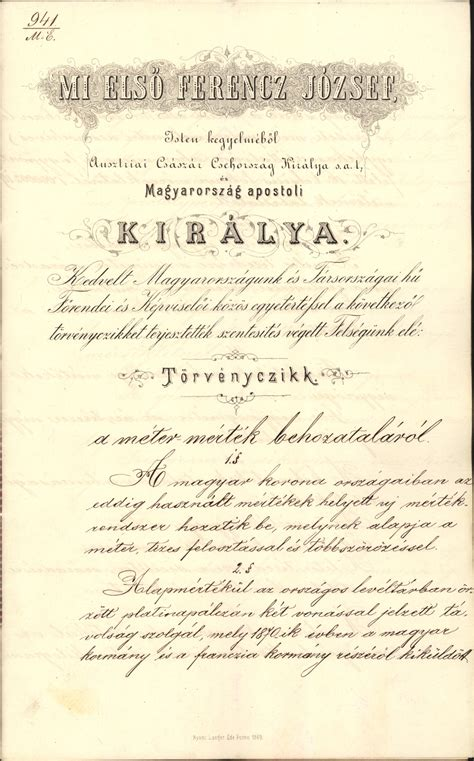 941
M. E.
MI ELSŐ FERENCZ JÓZSEF,
Isten kegyelméből
Ausztriai Császár Csehország Királya s.a.t,
és
Magyarország apostoli
KIRÁLYA.
Kedvelt Magyarországunk és Társországai hű
Főrendei és Képviselői közös egyetértéssel a következő
törvényczikket terjesztették szentesítés végett Felségünk elé:
Törvényczikk.
a méter-mérték behozataláról.
1. §
A magyar korona országaiban az
eddig használt mértékek helyett uj mérték-
rendszer hozatik be, melynek alapja a
méter, tizes felosztással és többszörözéssel.
2. §
Alapmértékül az országos levéltárban őr-
zött, platinapálczán két vonással jelzett tá-
volság szolgál, mely 1870-ik évben a magyar
kormány és a franczia kormány részéről kiküldöt-